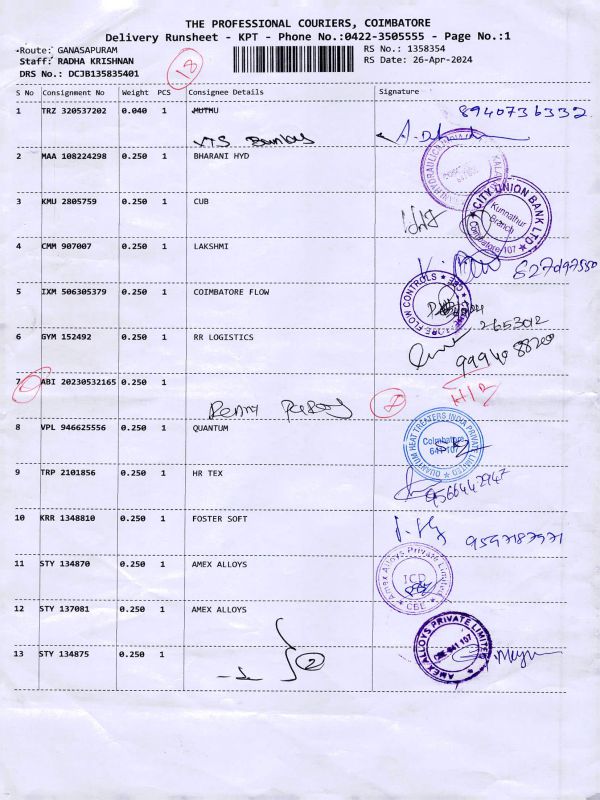 THE PROFESSIONAL COURIERS, COIMBATORE
Delivery Runsheet - KPT - Phone No.:0422-3505555 - Page No.:1
Route: GANASAPURAM
RS No.: 1358354
Staff: RADHA KRISHNAN
RS Date: 26-Apr-2024
DRS No.: DCJB135835401
18
S No Consignment No Weight PCS Consignee Details Signature
1 TRZ 320537202 0.040 1 MUTHU 8940736332
2 MAA 108224298 0.250 1 BHARANI HYD
3 KMU 2805759 0.250 1 CUB
CITY UNION BANK LTD
Kunnathur
Branch
Coimbatore 107
4 CMM 907007 0.250 1 LAKSHMI
5 IXM 506305379 0.250 1 COIMBATORE FLOW
COIMBATORE FLOW CONTROLS * CBE *
6 GYM 152492 0.250 1 RR LOGISTICS
2653012
99940 88200
7 ABI 20230532165 0.250 1
2
8 VPL 946625556 0.250 1 QUANTUM
QUANTUM HEAT TREATERS INDIA PRIVATE LIMITED
Coimbatore
641 107
9 TRP 2101856 0.250 1 HR TEX
9566442947
10 KRR 1348810 0.250 1 FOSTER SOFT
9597187971
11 STY 134870 0.250 1 AMEX ALLOYS
Amex Alloys Private Limited
ICD
* CBE *
12 STY 137081 0.250 1 AMEX ALLOYS
AMEX ALLOYS PRIVATE LIMITED
CBE-641 107
13 STY 134875 0.250 1
2